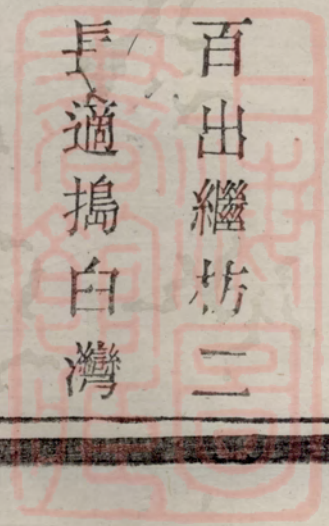 百出繼坊二
長適搗白灣